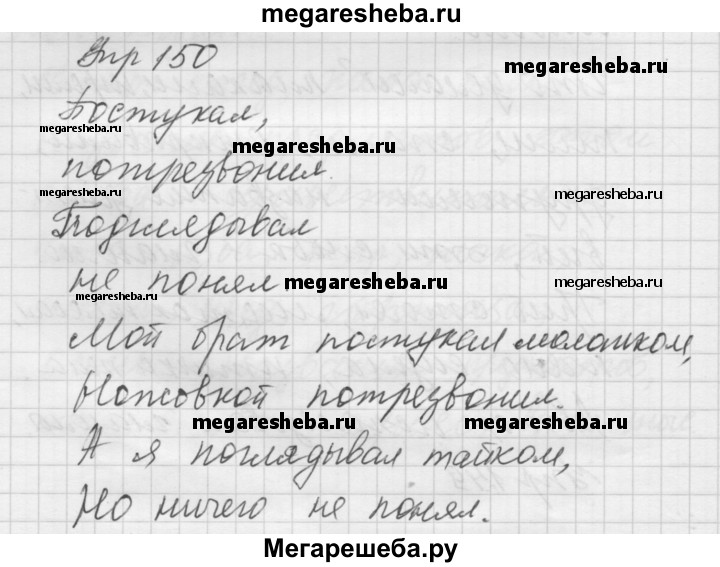 megaresheba.ru
Упр 150
megaresheba.ru
Постукал,
megaresheba.ru
megaresheba.ru
потрезвонил.
megaresheba.ru
megaresheba.ru
Подглядывал
не понял megaresheba.ru
megaresheba.ru
megaresheba.ru
Мой брат постукал молотком,
Ножовкой потрезвонил.
megaresheba.ru
megaresheba.ru
А я поглядывал тайком,
Но ничего не понял.
Мегарешеба.ру